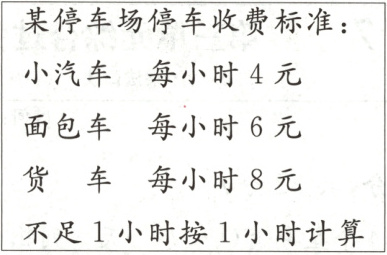 某停车场停车收费标准：
小汽车 每小时4元
面包车 每小时6元
货 车 每小时8元
不足1小时按1小时计算